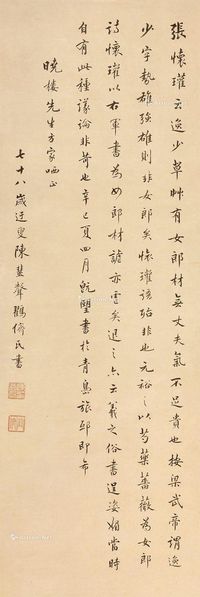 張懷瓘云逸少草艸有女郎材無丈夫氣不足貴也按梁武帝謂逸
少字勢雄強雄則非女郎矣懷瓘該殆非也元裕之以芍藥薔薇為女郎
詩懷瓘以右軍書為女郎材諺亦虐矣退之亦云羲之俗書逞姿媚當時
自有此種議論非苛也辛巳夏四月
書於青島旅邸即希
曉樓先生方家哂正
七十八歲迂叟陳
書